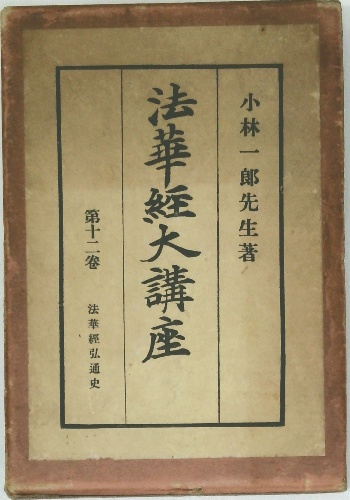 小林一郎先生著
法華經大講座
第十二卷
法華經弘通史